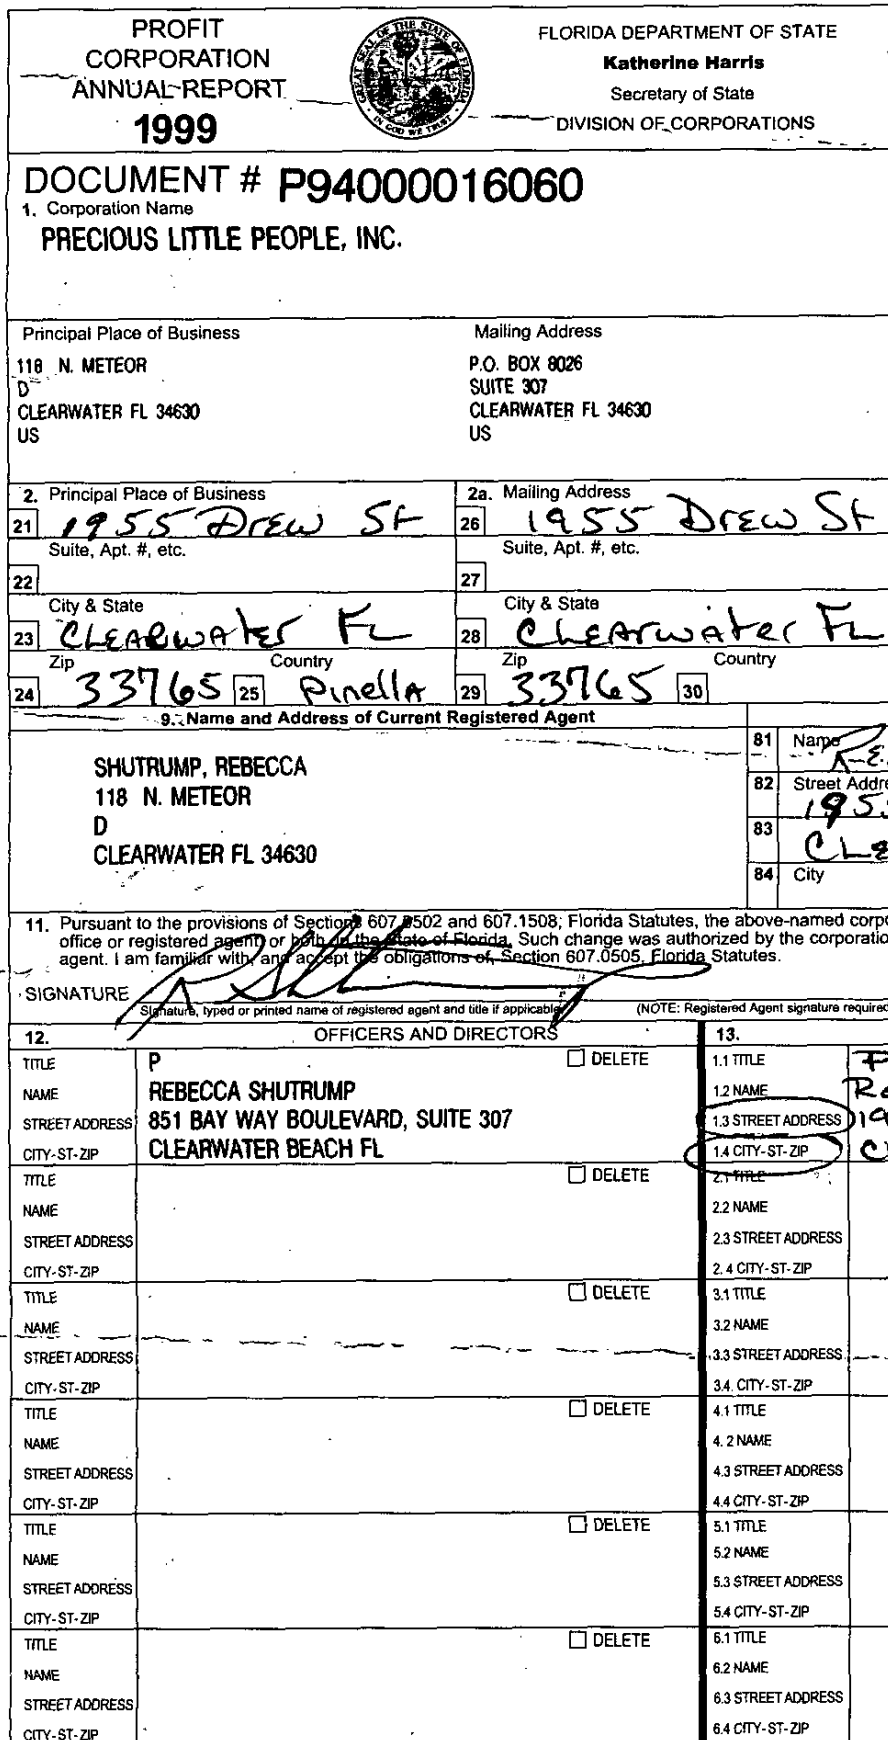 PROFIT
CORPORATION
ANNUAL REPORT
1999
GREAT SEAL OF THE STATE OF FLORIDA
IN GOD WE TRUST
FLORIDA DEPARTMENT OF STATE
Katherine Harris
Secretary of State
DIVISION OF CORPORATIONS
DOCUMENT # P94000016060
1. Corporation Name
PRECIOUS LITTLE PEOPLE, INC.
Principal Place of Business
118 N. METEOR
D
CLEARWATER FL 34630
US
Mailing Address
P.O. BOX 8026
SUITE 307
CLEARWATER FL 34630
US
2. Principal Place of Business
21 1955 Drew St
Suite, Apt. #, etc.
22
City & State
23 CLEARWATER FL
Zip Country
24 33765 25 Pinella
2a. Mailing Address
26 1955 Drew St
Suite, Apt. #, etc.
27
City & State
28 CLEArwAter FL
Zip Country
29 33765 30
9. Name and Address of Current Registered Agent
SHUTRUMP, REBECCA
118 N. METEOR
D
CLEARWATER FL 34630
81 Name
82 Street Addre
195
83 CLE
84 City
11. Pursuant to the provisions of Sections 607.0502 and 607.1508, Florida Statutes, the above-named corpo
office or registered agent, or both, in the State of Florida. Such change was authorized by the corporatio
agent. I am familiar with, and accept the obligations of, Section 607.0505, Florida Statutes.
SIGNATURE
Signature, typed or printed name of registered agent and title if applicable
(NOTE: Registered Agent signature required
12. OFFICERS AND DIRECTORS
TITLE P DELETE
NAME REBECCA SHUTRUMP
STREET ADDRESS 851 BAY WAY BOULEVARD, SUITE 307
CITY-ST-ZIP CLEARWATER BEACH FL
TITLE DELETE
NAME
STREET ADDRESS
CITY-ST-ZIP
TITLE DELETE
NAME
STREET ADDRESS
CITY-ST-ZIP
TITLE DELETE
NAME
STREET ADDRESS
CITY-ST-ZIP
TITLE DELETE
NAME
STREET ADDRESS
CITY-ST-ZIP
TITLE DELETE
NAME
STREET ADDRESS
CITY-ST-ZIP
13.
1.1 TITLE P
1.2 NAME Re
1.3 STREET ADDRESS 19
1.4 CITY-ST-ZIP C
2.1 TITLE
2.2 NAME
2.3 STREET ADDRESS
2.4 CITY-ST-ZIP
3.1 TITLE
3.2 NAME
3.3 STREET ADDRESS
3.4. CITY-ST-ZIP
4.1 TITLE
4.2 NAME
4.3 STREET ADDRESS
4.4 CITY-ST-ZIP
5.1 TITLE
5.2 NAME
5.3 STREET ADDRESS
5.4 CITY-ST-ZIP
6.1 TITLE
6.2 NAME
6.3 STREET ADDRESS
6.4 CITY-ST-ZIP